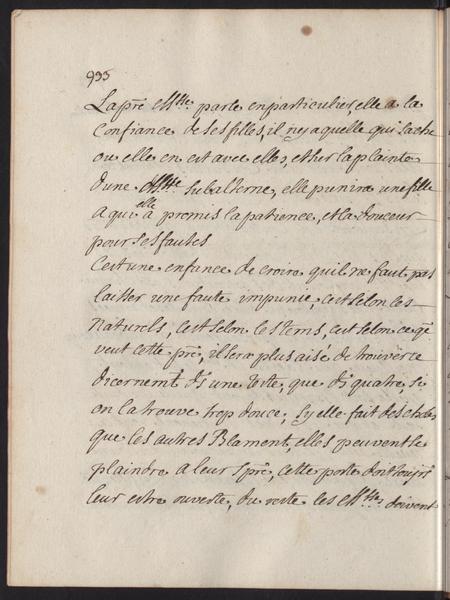 935
La pre Mtte parle en particulier, elle a la
Confiance de ses filles, il n'y a quelle qui sache
ou elle en est avec elles, et sur la plainte
dune Mtte subalterne, elle punira une fille
a qui elle a promis la patience, et la douceur
pour ses fautes
Cest une enfance de croire quil ne faut pas
laisser une faute impunie, cest selon les
Naturels, cest selon les tems, cest selon ce q̃
veut cette pre, il sera plus aisé de trouver ce
dicernemt ds une teste, que ds quatre, si
on la trouve trop douce, sy elle fait des choses
que les autres Blament, elles peuvent se
plaindre a leur Spre, cette porte doit toujrs
leur estre ouverte, du reste les Mttes doivent